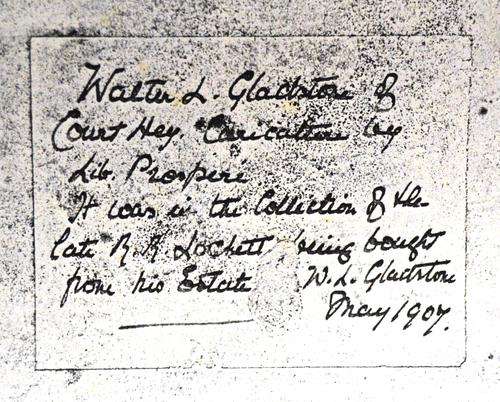 Walter L. Gladstone of
Court Hey. Caricature by
Lib. Prosperi
It was in the Collection of the
late R. R. Lockett being bought
from his Estate W. L. Gladstone
May 1907.